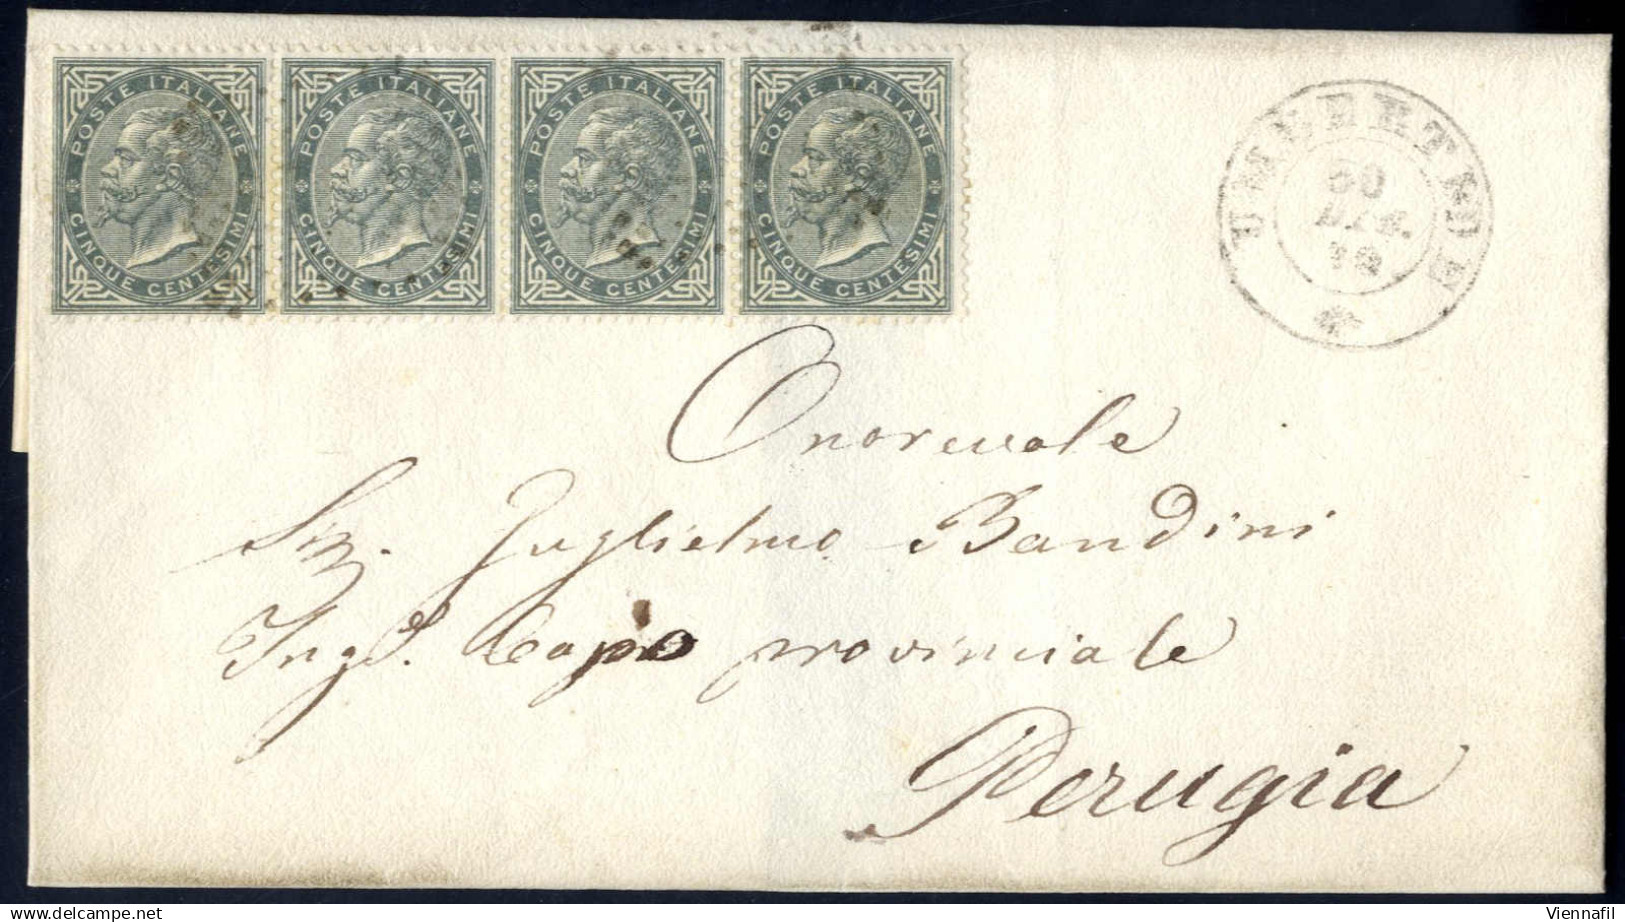 POSTE ITALIANE
CINQUE CENTESIMI
POSTE ITALIANE
CINQUE CENTESIMI
POSTE ITALIANE
CINQUE CENTESIMI
POSTE ITALIANE
CINQUE CENTESIMI
UMBERTIDE
30
Onorevole
Sig. Guglielmo Bandini
Ing. Capo provinciale
Perugia
Viennafil